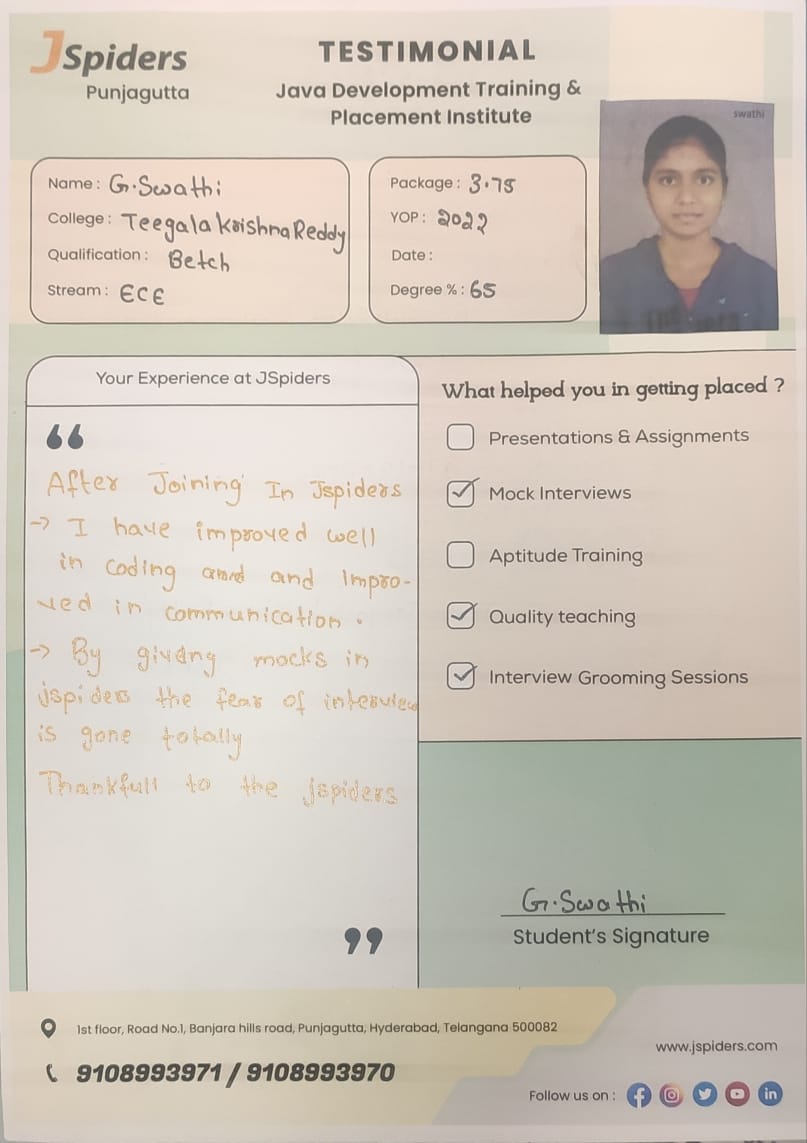 JSpiders
Punjagutta
TESTIMONIAL
Java Development Training &
Placement Institute
swathi
Name : G.Swathi
College : Teegala KrishnaReddy
Qualification : Betch
Stream : ECE
Package : 3.75
YOP : 2022
Date :
Degree % : 65
Your Experience at JSpiders
“
After Joining In Jspiders
-> I have improved well
in coding and and Impro-
ved in communication .
-> By giving mocks in
jspiders the fear of interview
is gone totally
Thankfull to the jspiders
”
What helped you in getting placed ?
Presentations & Assignments
Mock Interviews
Aptitude Training
Quality teaching
Interview Grooming Sessions
G.Swathi
Student's Signature
1st floor, Road No.1, Banjara hills road, Punjagutta, Hyderabad, Telangana 500082
9108993971 / 9108993970
www.jspiders.com
Follow us on :